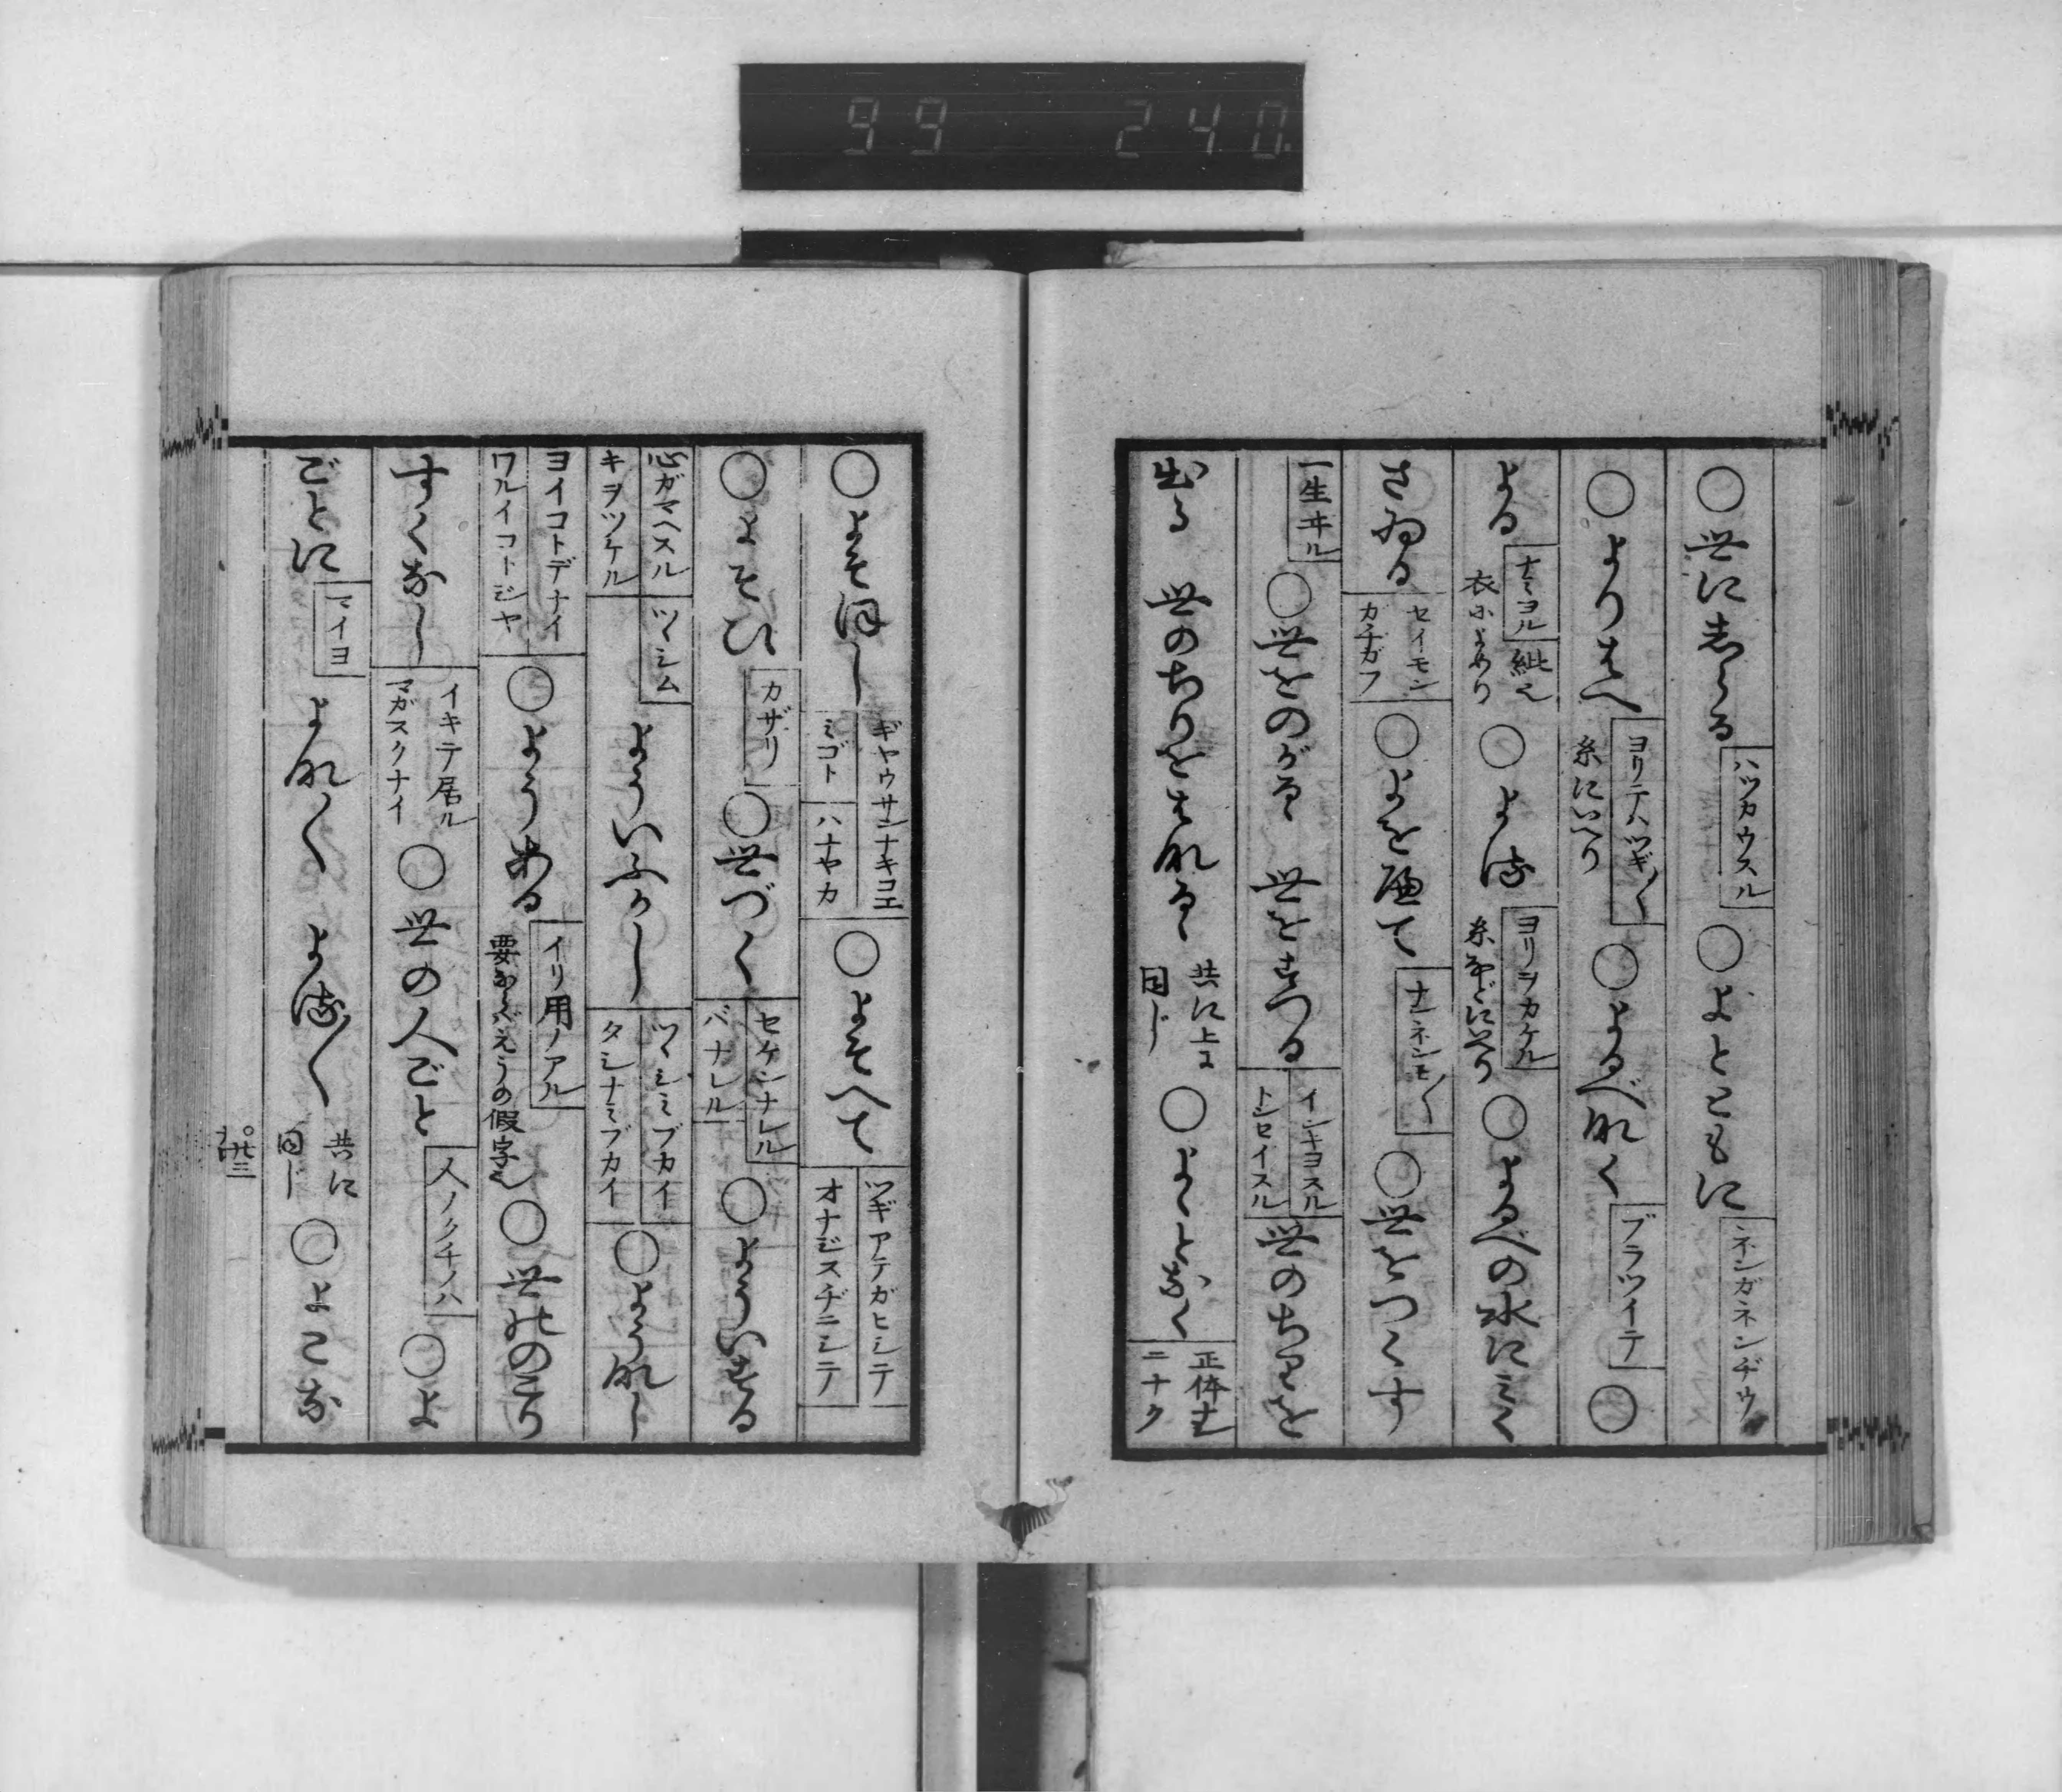 99 240
○世にしらる ハツカウスル ○よとともに ネンガネンヂウ
○よりあへ ヨリテハツギ〱 糸にいへり ○よるべなく ブラツイテ ○
よる ナミヨル 紕也 衣にいへり ○よる ヨリヲカケル 糸などにいへり ○よるべの水にみく
さゐる セイモンガチガフ ○よを歴て ナンネンモ〱 ○世をつくす
一生ヰル ○世をのがるゝ 世をすつる インキヨスル トンセイスル 世のちりを
出る 世のちりをはなるゝ 共に上に同じ ○よゝとなく 正体ナニナク
○よそほし ギヤウサンナキコエ ミゴト ハナヤカ ○よそへて ツギアテガヒシテ オナジスヂニシテ
○よそひ カザリ ○世づく セケンナレル バナレル ○よういする
心ガマヘスル キヲツケル ツヽシム よういふかし ツヽシミブカイ タシナミブカイ ○ようなし
ヨイコトデナイ ワルイコトジヤ ○ようある イリ用ノアル 要なればえうの假字也 ○世にのこり
すくなし イキテ居ルマガスクナイ ○世の人ごと 人ノクチノハ ○よ
ごとに マイヨ よな〱 よる〱 共に同じ ○よこな